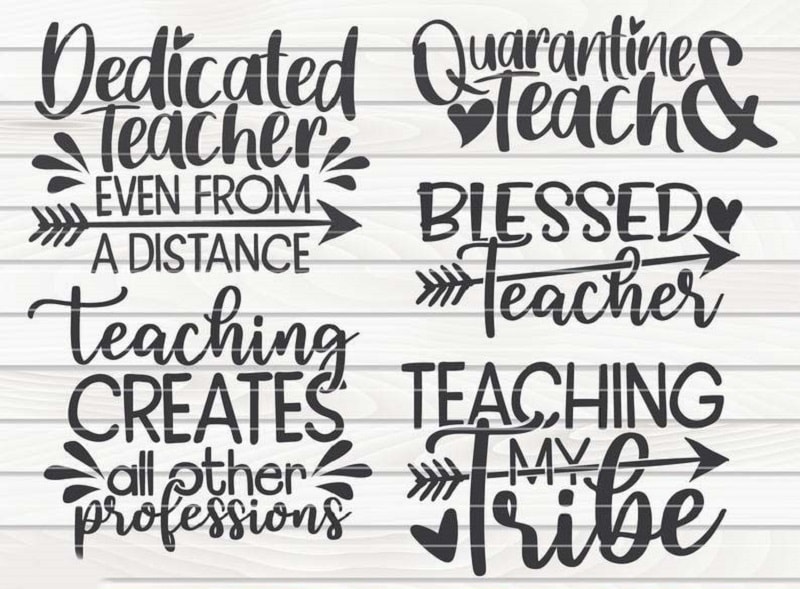 Dedicated
Teacher
EVEN FROM
A DISTANCE
Teaching
CREATES
all other
professions
Quarantine
& Teach
BLESSED
Teacher
TEACHING
MY
Tribe